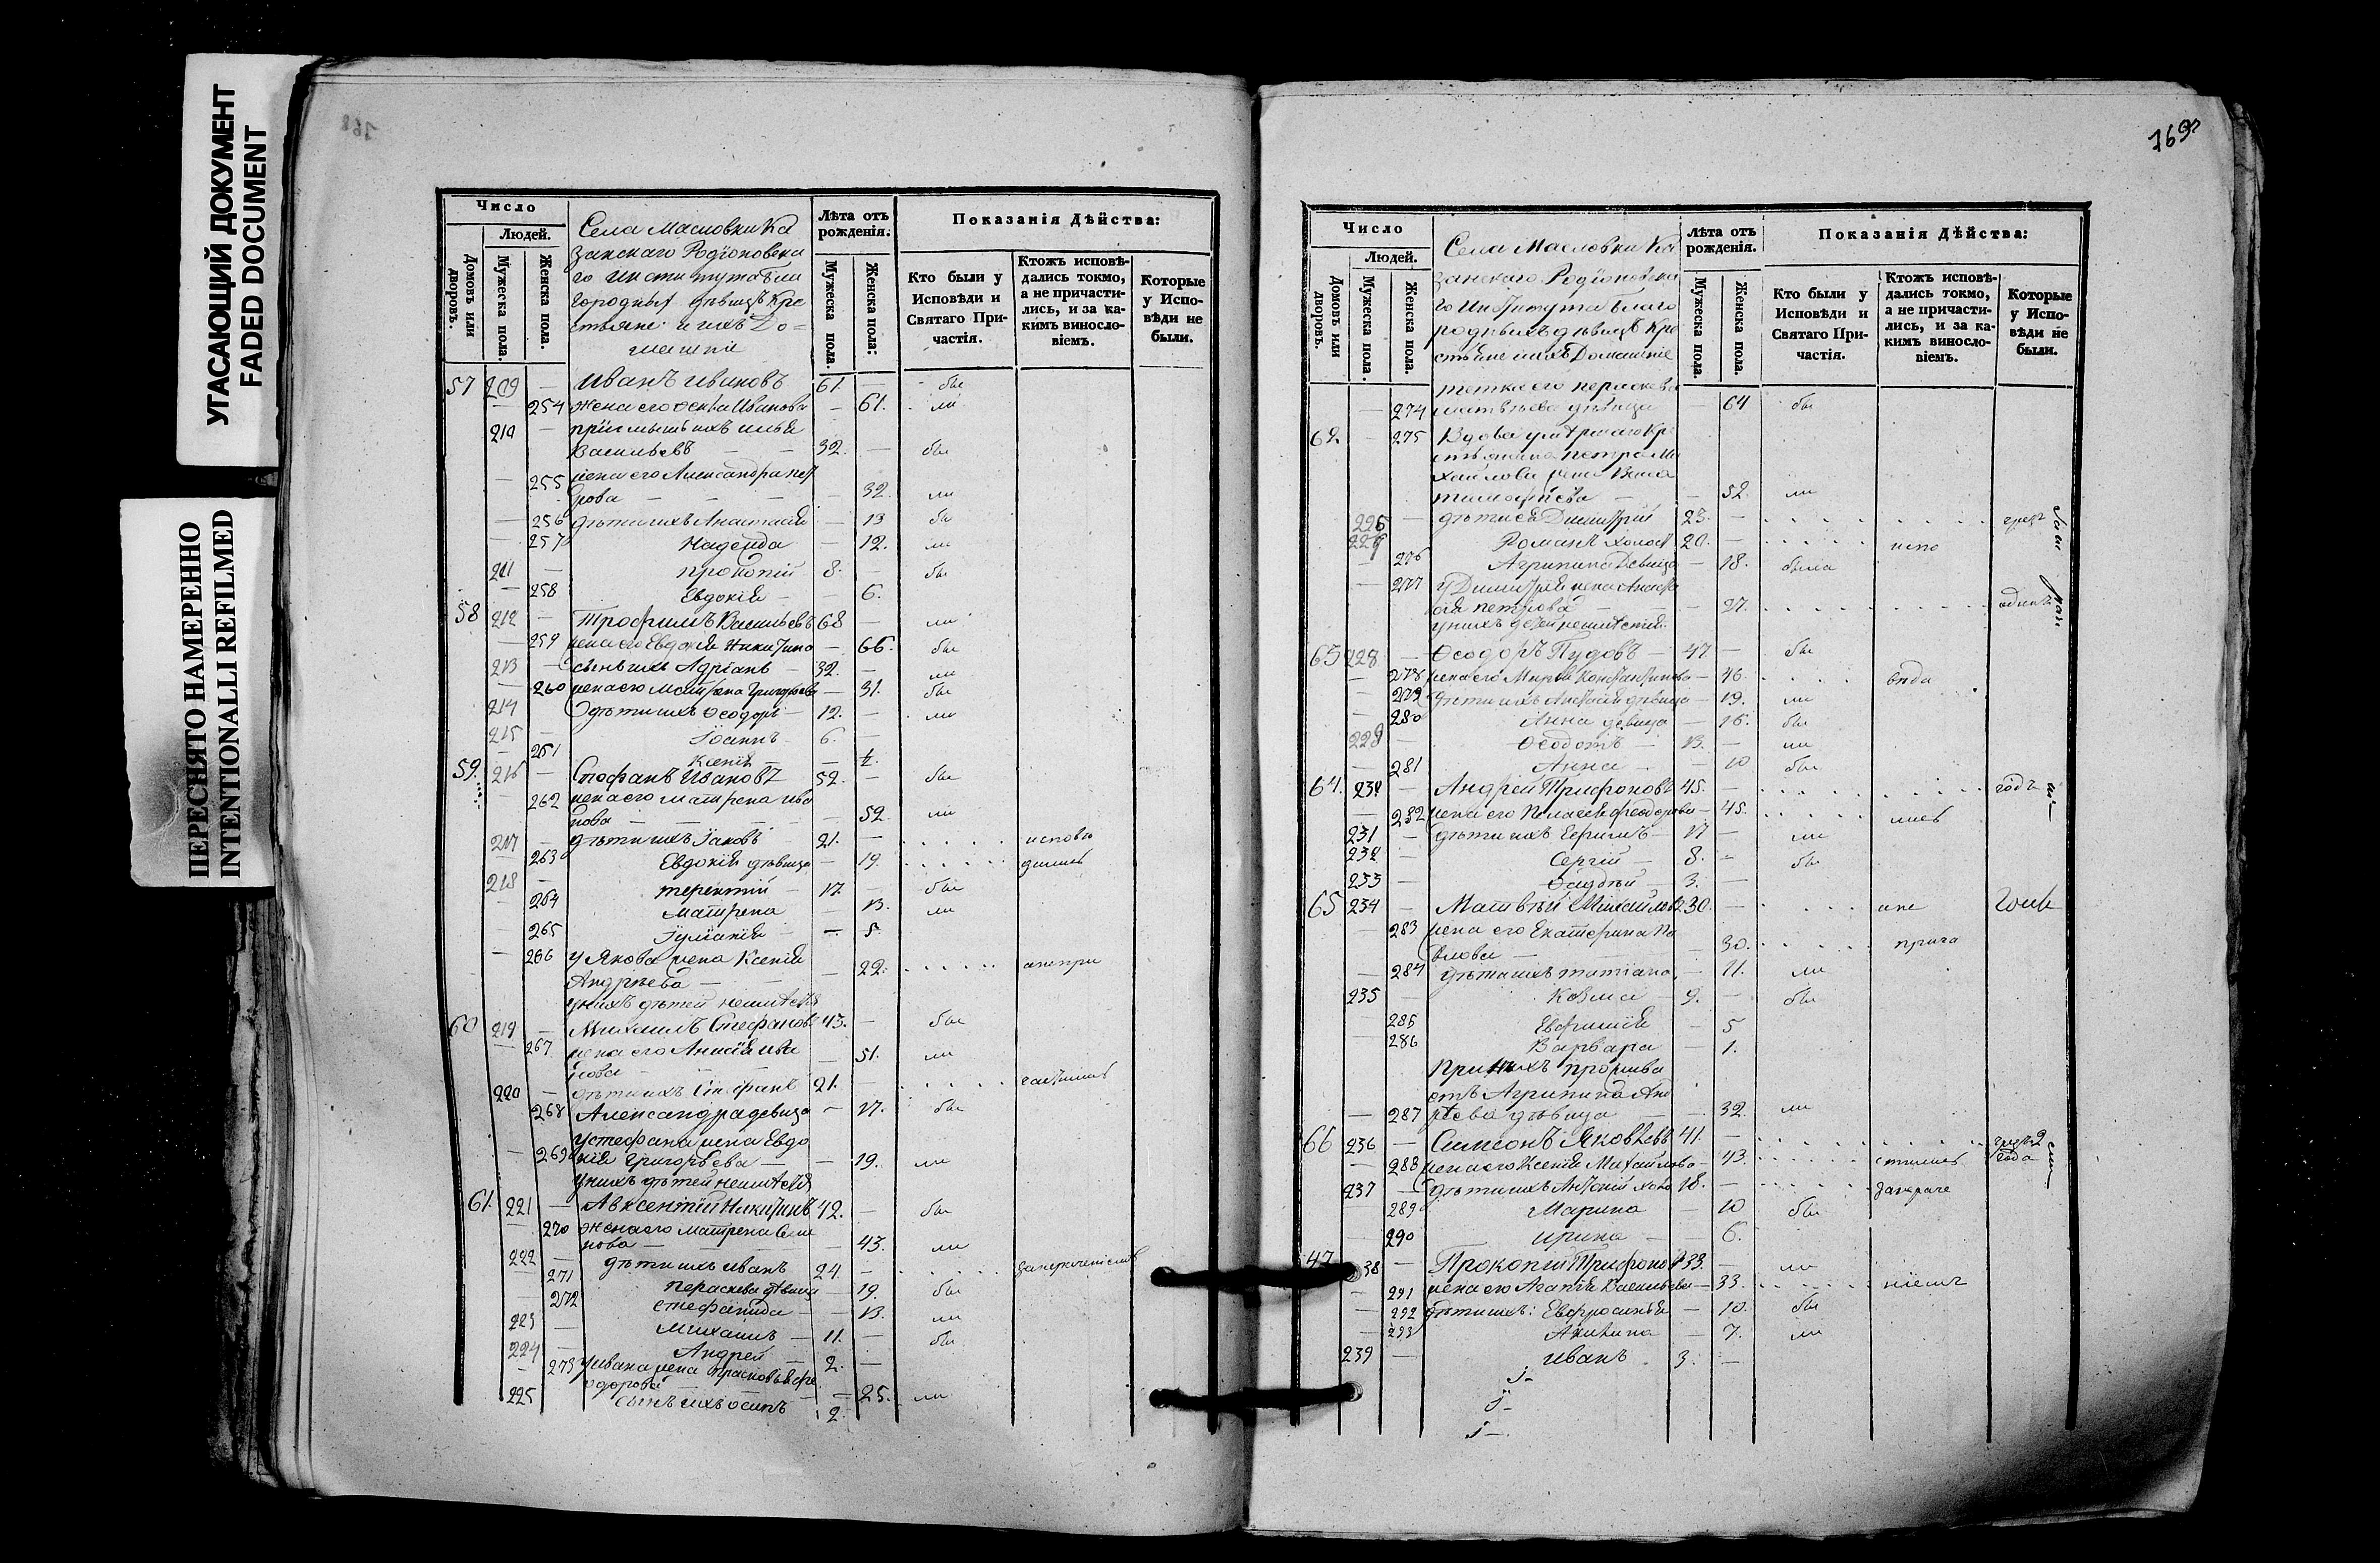 УГАСАЮЩИЙ ДОКУМЕНТ
FADED DOCUMENT
ПЕРЕСНЯТО НАМЕРЕННО
INTENTIONALLI REFILMED
Число
Людей.
Домовъ или дворовъ.
Мужеска пола.
Женска пола.
Села Масловки Ка
занскаго Родіоновска
го Института бла
городныхъ дѣвицъ Кре
стьяне и ихъ До=
машніе
Лѣта отъ рожденія.
Мужеска пола
Женска пола:
Показанія Дѣйства:
Кто были у Исповѣди и Святаго Причастія.
Ктожъ исповѣдались токмо, а не причастились, и за какимъ винословіемъ.
Которые у Исповѣди не были.
57 209 — Иванъ Ивановъ 61. — бы
— 254 жена его Ѳекла Иванова — 61. ли
210 — пріемышъ ихъ Илья
Васильевъ — — 32. — бы
— 255 жена его Александра Пет
рова — — — — 32. ли
— 256 дѣти ихъ Анастасія — 13 бы
— 257 Надежда — 12. ли
211 — Прокопій 8. — бы
— 258 Евдокія — — 6.
58 212 — Трофимъ Васильевъ 68 — ли
— 259 жена его Евдокія Никитина — 66. бы
213 — сынъ ихъ Адріанъ — 32. — ли
— 260 жена его Матрена Григорьева — 31. бы
214 дѣти ихъ Ѳеодоръ — 12. — ли
215 — Іоаннъ 6. —
— 261 Ксенія — —
59. 216 — Стефанъ Ивановъ 52. — бы
— 262 жена его Матрена Ива
нова — — — — 52. ли
217 — дѣти ихъ Іаковъ 21. — . . . . . исповѣ
— 263 Евдокія дѣвица — 19. . . . . . дались
218 — Терентій — 17. — бы
— 264 Матрена — 13. ли
— 265 Іуліанія — — 5.
— 266 у Якова жена Ксенія
Андреева — — — 22. . . . . . анепри
у нихъ дѣтей неимѣетъ
60 219 — Михаилъ Стефановъ 43. — бы
— 267 жена его Анисія Ива
нова — — — — 51. ли
220 — дѣти ихъ Стефанъ 21. — . . . . . частились
268 Александра девица — 17. бы
у Стефана жена Евдо
— 269 кія Григорьева — — 19. ли
у нихъ дѣтей неимѣетъ
61. 221 — Авксентій Никитинъ 42. — бы
— 270 жена его Матрена Семе
нова — — 43. ли
222 — дѣти ихъ Иванъ 24. — . . . .
— 271 Параскева дѣвица — 19. бы
— 272 Стефанида — 13. ли
223 — Михаилъ — 11. — бы
224 — Андрей — 2. —
— 273 у Ивана жена Прасковья Ѳе
одорова — — 25. ли
225 сынъ ихъ Осипъ 2.
169
Число
Людей.
Домовъ или дворовъ.
Мужеска пола.
Женска пола.
Села Масловки Ка
занскаго Родіоновска
го Института благо
родныхъ дѣвицъ Кре
стьяне и ихъ Домашніе
Лѣта отъ рожденія.
Мужеска пола.
Женска пола.
Показанія Дѣйства:
Кто были у Исповѣди и Святаго Причастія.
Ктожъ исповѣдались токмо, а не причастились, и за какимъ винословіемъ.
Которые у Исповѣди не были.
тетка его Параскева
— 274 Матвѣева дѣвица — 64 бы
62. — 275 Вдова умершаго Кре
стьянина Петра Ми
хайлова жена
Тимофеева — — 52. ли
226 — дѣти ея Димитрій 23. — . . . .
Романъ холост 20. — . . . .
— 276 Агрипина Девица — 18. была
— 277 у Димитрія жена Анаста
сія Петрова — — 27. . . . . одинъ
у нихъ детей неимѣетъ
63 228 — Ѳеодоръ Пудовъ — 47. — бы
— 278 жена его Марѳа Константинова — 46. . . . .
— 279 дѣти ихъ дѣвица — 19. ли
— 280 Анна девица — 16. бы
229 — Ѳеодотъ — 13. — ли
— 281 Анна — — 10 бы
64. — Андрей Трифоновъ 45. — . . . . годъ
— 282 жена его Пелагея Ѳеодорова — 45. . . . .
231 — дѣти ихъ Ефимъ — 17 — ли
232 — Сергій — 8. — бы
233 — 3. —
65 234 — Матвѣй Михайловъ 30. — . . . . ане
— 283 жена его Екатерина Па
влова — — 30. . . . . . прича
— 284 дѣти ихъ Татіана — 11. ли
235 — Козма — 9. — бы
— 285 Евфимія — 5
— 286 Варвара — 1.
При нихъ прожива
етъ Агрипина Анд
— 287 реева дѣвица — — 32. ли
66 236 — Симеонъ Яковлевъ 41. — . . . . 2
— 288 жена его Ксенія Михайлова — 43. . . . . . стились года
237 — дѣти ихъ Антоній холо 18. — . . . .
— 289 Марина — 10 бы
— 290 Ирина — — 6.
47 38 — Прокопій Трифоновъ 33. — ли
— 291 жена его Агапія Васильева — 33. . . . . . ніемъ
— 292 дѣти ихъ: Евфросинья — 10. бы
— 293 Акилина — 7. ли
239 — Иванъ 3. —